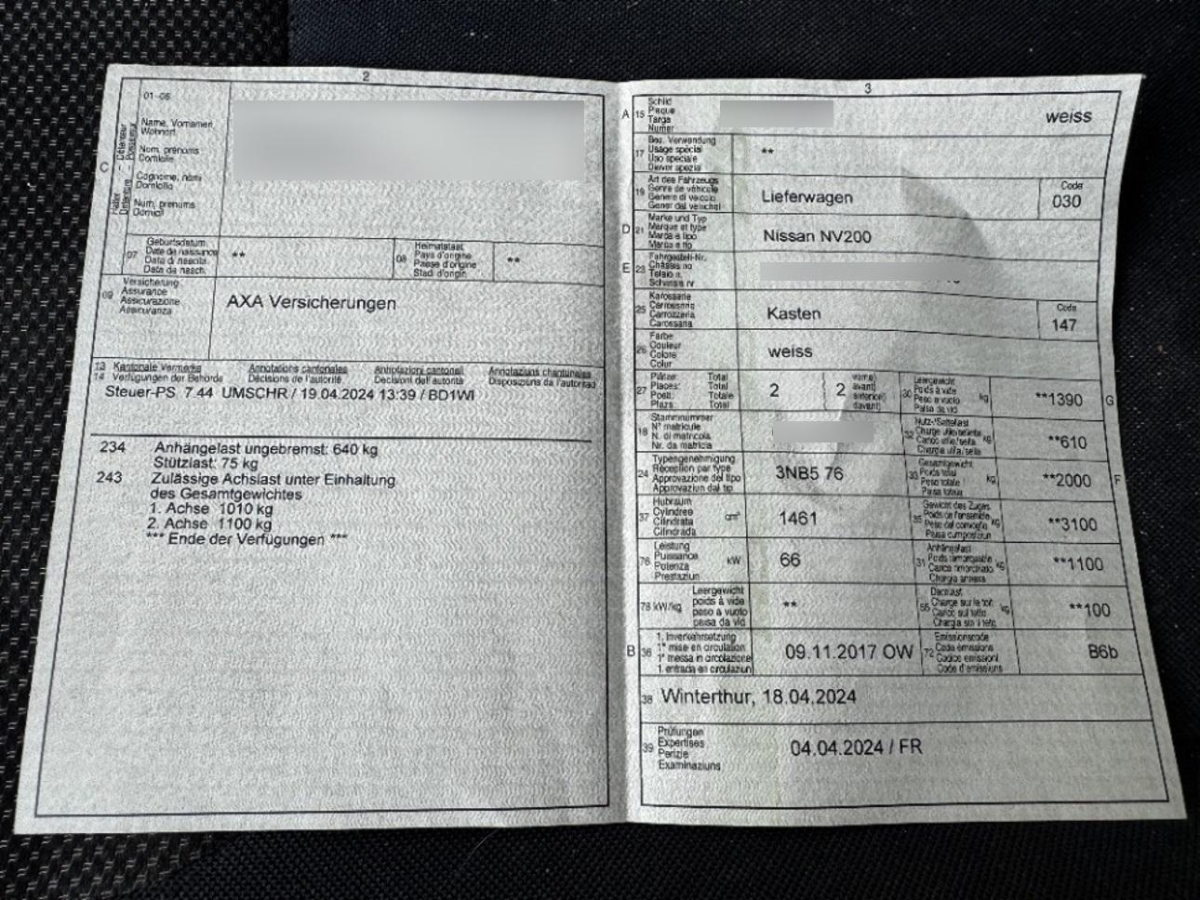 2
01-06
Halter Détenteur
Name, Vornamen
Wohnort
Nom, prénoms
Domicile
Cognome, nomi
Domicilio
Num, prenums
Domicil
C
07 Geburtsdatum
Date de naissance
Data di nascita
Data da nasch.
**
08 Heimatstaat
Pays d'origine
Paese d'origine
Stadi d'origin
**
09 Versicherung
Assurance
Assicurazione
Assicuranza
AXA Versicherungen
13 Kantonale Vermerke Annotations cantonales Annotazioni cantonali Annotaziuns chantunalas
14 Verfügungen der Behörde Décisions de l'autorité Decisioni dell'autorità Disposiziuns da l'autoritad
Steuer-PS 7.44 UMSCHR / 19.04.2024 13:39 / BD1WI
234 Anhängelast ungebremst: 640 kg
Stützlast: 75 kg
243 Zulässige Achslast unter Einhaltung
des Gesamtgewichtes
1. Achse 1010 kg
2. Achse 1100 kg
*** Ende der Verfügungen ***
3
A 15 Schild
Plaque
Targa
Numer
weiss
17 Bes. Verwendung
Usage spécial
Uso speciale
Diever spezial
**
19 Art des Fahrzeugs
Genre de véhicule
Genere di veicolo
Gener dal vehichel
Lieferwagen
Code
030
D 21 Marke und Typ
Marque et type
Marca e tipo
Marca e tip
Nissan NV200
E 23 Fahrgestell-Nr.
Châssis no
Telaio n.
Schassis nr
25 Karosserie
Carrosserie
Carrozzeria
Carossaria
Kasten
Code
147
26 Farbe
Couleur
Colore
Colur
weiss
27 Plätze: Total
Places: Total
Posti: Totale
Plazs: Total
2
2
vorne)
avant)
anteriore)
davant)
30 Leergewicht
Poids à vide
Peso a vuoto
Paisa da vid
kg
**1390
G
18 Stammnummer
N° matricule
N. di matricola
Nr. da matricla
32 Nutz-/Sattellast
Charge utile/sellette
Carico utile/sella
Chargia utila/sella
kg
**610
24 Typengenehmigung
Réception par type
Approvazione del tipo
Approvaziun dal tip
3NB5 76
33 Gesamtgewicht
Poids total
Peso totale
Paisa totala
kg
**2000
F
37 Hubraum
Cylindrée
Cilindrata
Cilindrada
cm³
1461
35 Gewicht des Zuges
Poids de l'ensemble
Peso del convoglio
Paisa cumposiziun
kg
**3100
76 Leistung
Puissance
Potenza
Prestaziun
kW
66
31 Anhängelast
Poids remorquable
Carico rimorchiato
Chargia annexa
kg
**1100
78 kW/kg
Leergewicht
poids à vide
peso a vuoto
paisa da vid
**
55 Dachlast
Charge sur le toit
Carico sul tetto
Chargia sin il tetg
kg
**100
B 36 1. Inverkehrsetzung
1re mise en circulation
1a messa in circolazione
1. entrada en circulaziun
09.11.2017 OW
72 Emissionscode
Code émissions
Codice emissioni
Code d'emissiuns
B6b
38 Winterthur, 18.04.2024
39 Prüfungen
Expertises
Perizie
Examinaziuns
04.04.2024 / FR